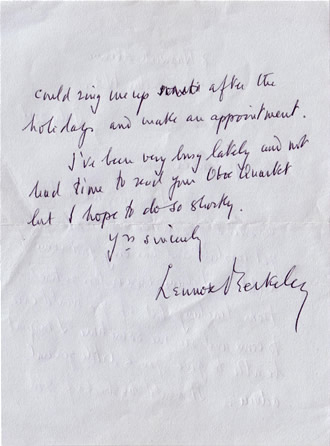 could ring me up after the
holidays and make an appointment.
I've been very busy lately and not
had time to read your Oboe Quartet
but I hope to do so shortly.
Yrs sincerely
Lennox Berkeley